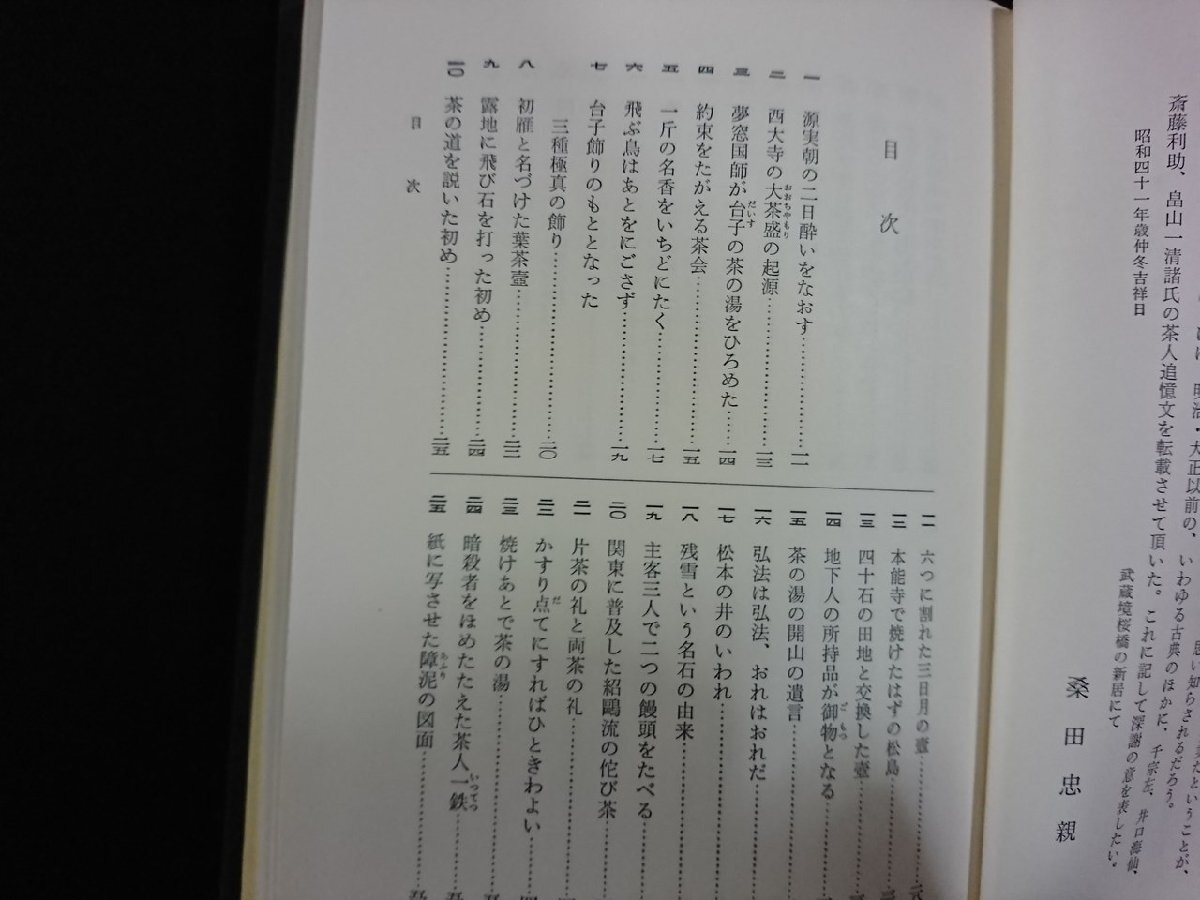 斎藤利助、畠山一清諸氏の茶人追憶文を転載させて頂いた。これに記して深謝の意を表したい。
昭和四十一年歳仲冬吉祥日
武蔵境桜橋の新居にて
桑田忠親
目次
一 源実朝の二日酔いをなおす…………一一
二 西大寺の大茶盛の起源…………一三
三 夢窓国師が台子の茶の湯をひろめた……一四
四 約束をたがえる茶会…………一五
五 一斤の名香をいちどにたく…………一七
六 飛ぶ鳥はあとをにごさず…………一九
七 台子飾りのもととなった
三種極真の飾り…………二〇
八 初雁と名づけた葉茶壺…………二二
九 露地に飛び石を打った初め…………二四
一〇 茶の道を説いた初め…………二五
目次
一一 六つに割れた三日月の壺…………
一二 本能寺で焼けたはずの松島…………
一三 四十石の田地と交換した壺…………
一四 地下人の所持品が御物となる…………
一五 茶の湯の開山の遺言…………
一六 弘法は弘法、おれはおれだ…………
一七 松本の井のいわれ…………
一八 残雪という名石の由来…………
一九 主客三人で二つの饅頭をたべる…………
二〇 関東に普及した紹鷗流の佗び茶…………
二一 片茶の礼と両茶の礼…………
二二 かすり点てにすればひときわよい…………
二三 焼けあとで茶の湯…………
二四 暗殺者をほめたたえた茶人一鉄…………
二五 紙に写させた障泥の図面…………